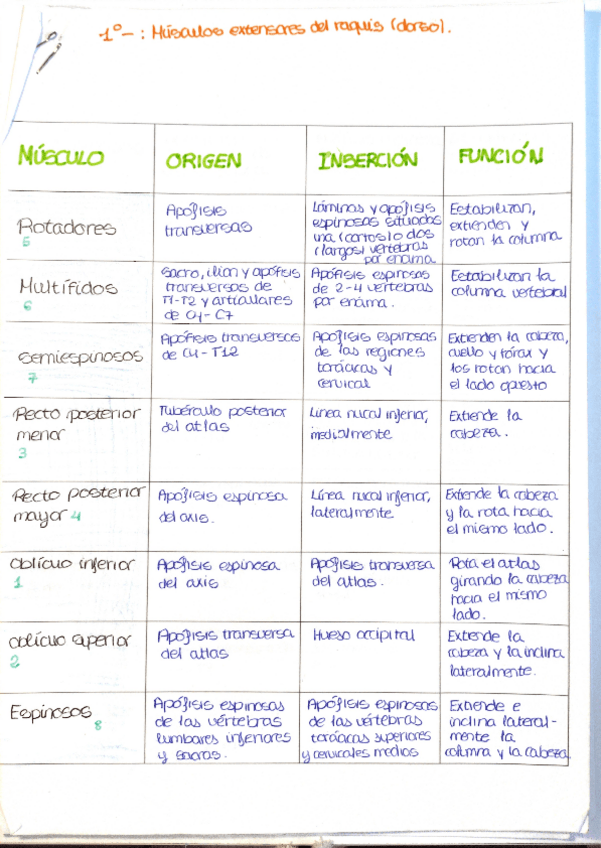 1º-: Músculos extensores del raquis (dorso).
MÚSCULO
ORIGEN
INSERCIÓN
FUNCIÓN
Rotadores
5
Apófisis
transversas
Láminas y apófisis
espinosas situadas
una (cortos) o dos
(largos) vértebras
por encima
Estabilizan,
extienden y
rotan la columna
Multífidos
6
Sacro, ilion y apófisis
transversos de
T1-T2 y articulares
de C4-C7
Apófisis espinosas
de 2-4 vértebras
por encima.
Estabilizan la
columna vertebral
Semiespinosos
7
Apófisis transversos
de C4-T12
Apofisis espinosas
de las regiones
torácicas y
cervical
Extienden la cabeza,
cuello y tórax y
los rotan hacia
el lado opuesto
Recto posterior
menor
3
Tubérculo posterior
del atlas
Línea nucal inferior,
medialmente
Extiende la
cabeza.
Recto posterior
mayor 4
Apofisis espinosa
del axis.
Línea nucal inferior,
lateralmente
Extiende la cabeza
y la rota hacia
el mismo lado.
Oblicuo inferior
1
Apófisis espinosa
del axis
Apófisis transversa
del atlas.
Rota el atlas
girando la cabeza
hacia el mismo
lado.
Oblícuo superior
2
Apofisis transversa
del atlas
Hueso occipital
Extiende la
cabeza y la inclina
lateralmente.
Espinosos
8
Apófisis espinosas
de las vértebras
lumbares inferiores
y sacras.
Apófisis espinosas
de las vértebras
torácicas superiores
y cervicales medios
Extiende e
inclina lateral-
mente la
columna y la cabeza